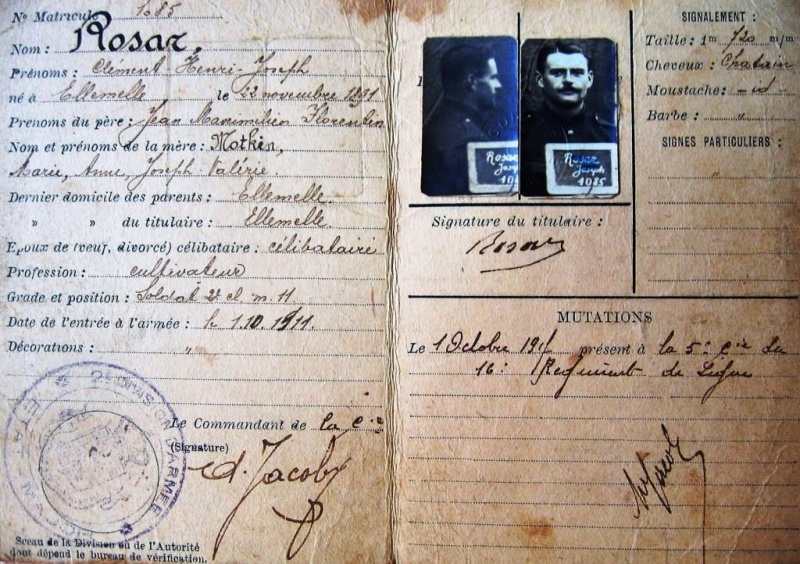 No Matricule 1685
Nom : Rosar,
Prénoms : Clément Henri-Joseph
né à Ellemelle le 22 novembre 1891
Prenoms du père : Jean Maximilien Florentin
Nom et prénoms de la mère : Mothin,
Marie, Anne, Joseph Valérie.
Dernier domicile des parents : Ellemelle.
" " du titulaire : Ellemelle.
Epoux de (veuf, divorcé) célibataire : célibataire
Profession : cultivateur
Grade et position : Soldat 2e cl m. 11
Date de l'entrée à l'armée : le 1.10.1911.
Décorations : "
Le Commandant de la Cie
(Signature)
d. Jacoby
2e DIVISION D'ARMEE
ETAT-MAJOR
Sceau de la Division ou de l'Autorité
dont dépend le bureau de vérification.
Rosar
Joseph
Rosar
Joseph
1685
Signature du titulaire :
Rosar
SIGNALEMENT :
Taille : 1m 720 m/m
Cheveux : Chatain
Moustache : -id-
Barbe : "
SIGNES PARTICULIERS :
"
MUTATIONS
Le 1 Octobre présent à la 5e Cie du
16e Régiment de Ligne